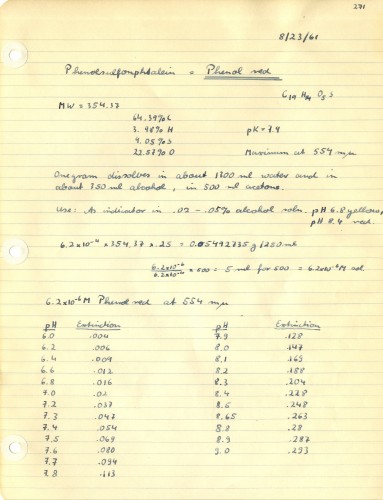 271
8/23/61
Phenolsulfonphthalein = Phenol red
C19 H14 O5 S
MW = 354.37
64.39% C
3.98% H pK = 7.9
9.05% S
22.57% O Maximum at 554 mμ
One gram dissolves in about 1300 ml water and in
about 350 ml alcohol, in 500 ml acetone.
Use: As indicator in .02 - .05% alcohol soln. pH 6.8 yellow,
pH 8.4 red.
× 354.37 × .25 = g/250 ml
× 500 = 5 ml for 500 = 6.2x10⁻⁶ M sol.
6.2x10⁻⁶ M Phenol red at 554 mμ
pH Extinction pH Extinction
6.0 .004 7.9 .128
6.2 .006 8.0 .147
6.4 .009 8.1 .169
6.6 .012 8.2 .188
6.8 .016 8.3 .204
7.0 .02 8.4 .228
7.2 .037 8.6 .248
7.3 .047 8.65 .263
7.4 .054 8.8 .28
7.5 .069 8.9 .287
7.6 .080 9.0 .293
7.7 .094
7.8 .113